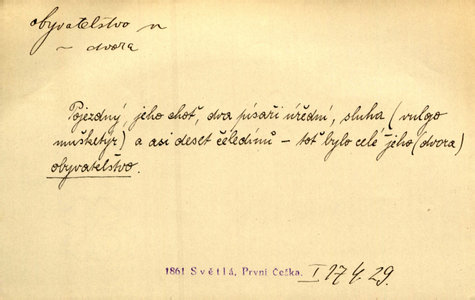 obyvatelstvo n
~ dvora
Pojezdný, jeho choť, dva písaři úřední, sluha (vulgo
mušketýr) a asi deset čeledínů – toť bylo celé jeho (dvora)
obyvatelstvo.
1861 Světlá, První Češka. I 174. 29.